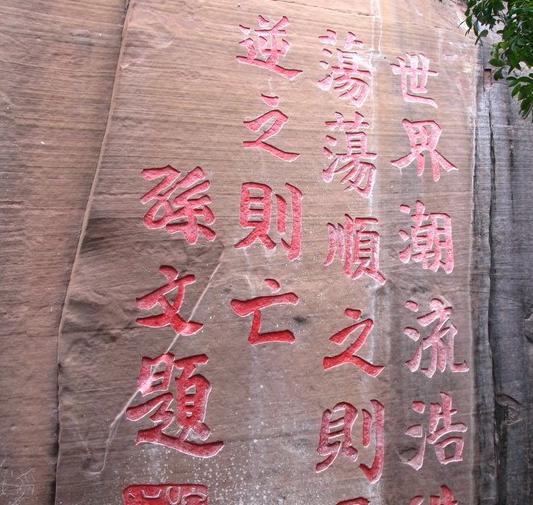 世界潮流浩
蕩蕩順之則
逆之則亡
孫文題